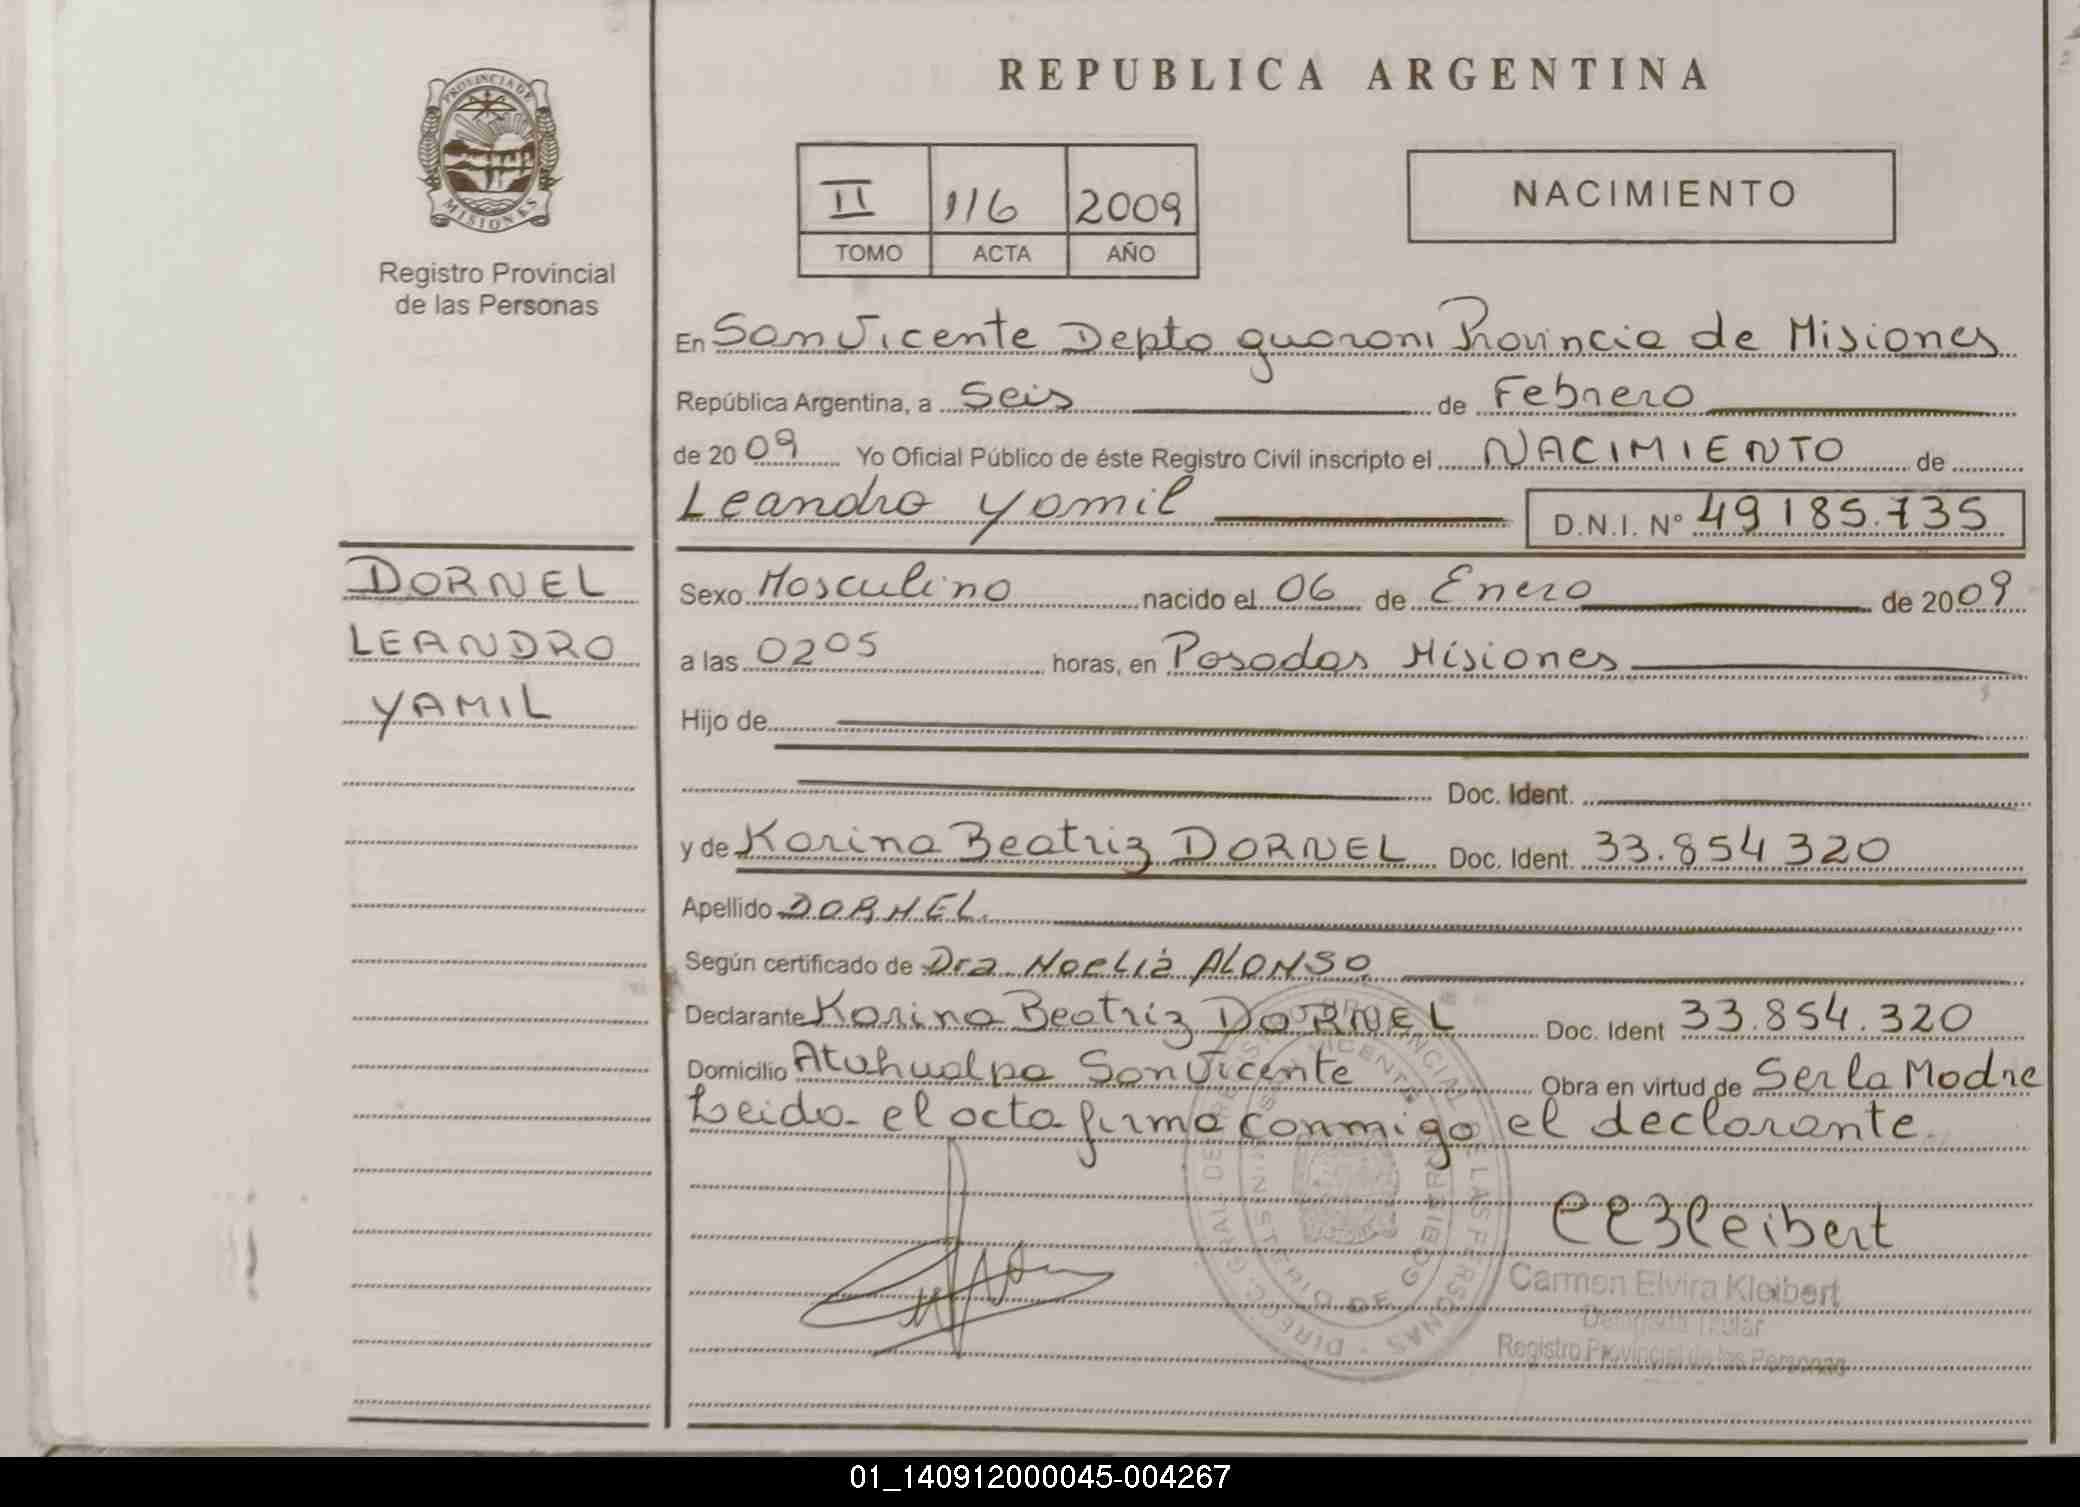 PROVINCIA DE
MISIONES
Registro Provincial
de las Personas
DORNEL
LEANDRO
YAMIL
REPUBLICA ARGENTINA
II 116 2009
TOMO ACTA AÑO
NACIMIENTO
En San Vicente Depto guarani Provincia de Misiones
República Argentina, a Seis de Febrero
de 2009 Yo Oficial Público de éste Registro Civil inscripto el NACIMIENTO de
Leandro Yamil D.N.I. Nº 49185.735
Sexo Masculino nacido el 06 de Enero de 2009
a las 0205 horas, en Posadas Misiones
Hijo de
Doc. Ident.
y de Karina Beatriz DORNEL Doc. Ident. 33.854320
Apellido DORNEL.
Según certificado de Dra Noelia ALONSO
Declarante Karina Beatriz DORNEL Doc. Ident 33.854.320
Domicilio Atahualpa San Vicente Obra en virtud de Ser la Madre
Leida el acta firma conmigo el declarante.
CEKleibert
Carmen Elvira Kleibert
Delegada Titular
Registro Provincial de las Personas
01_140912000045-004267